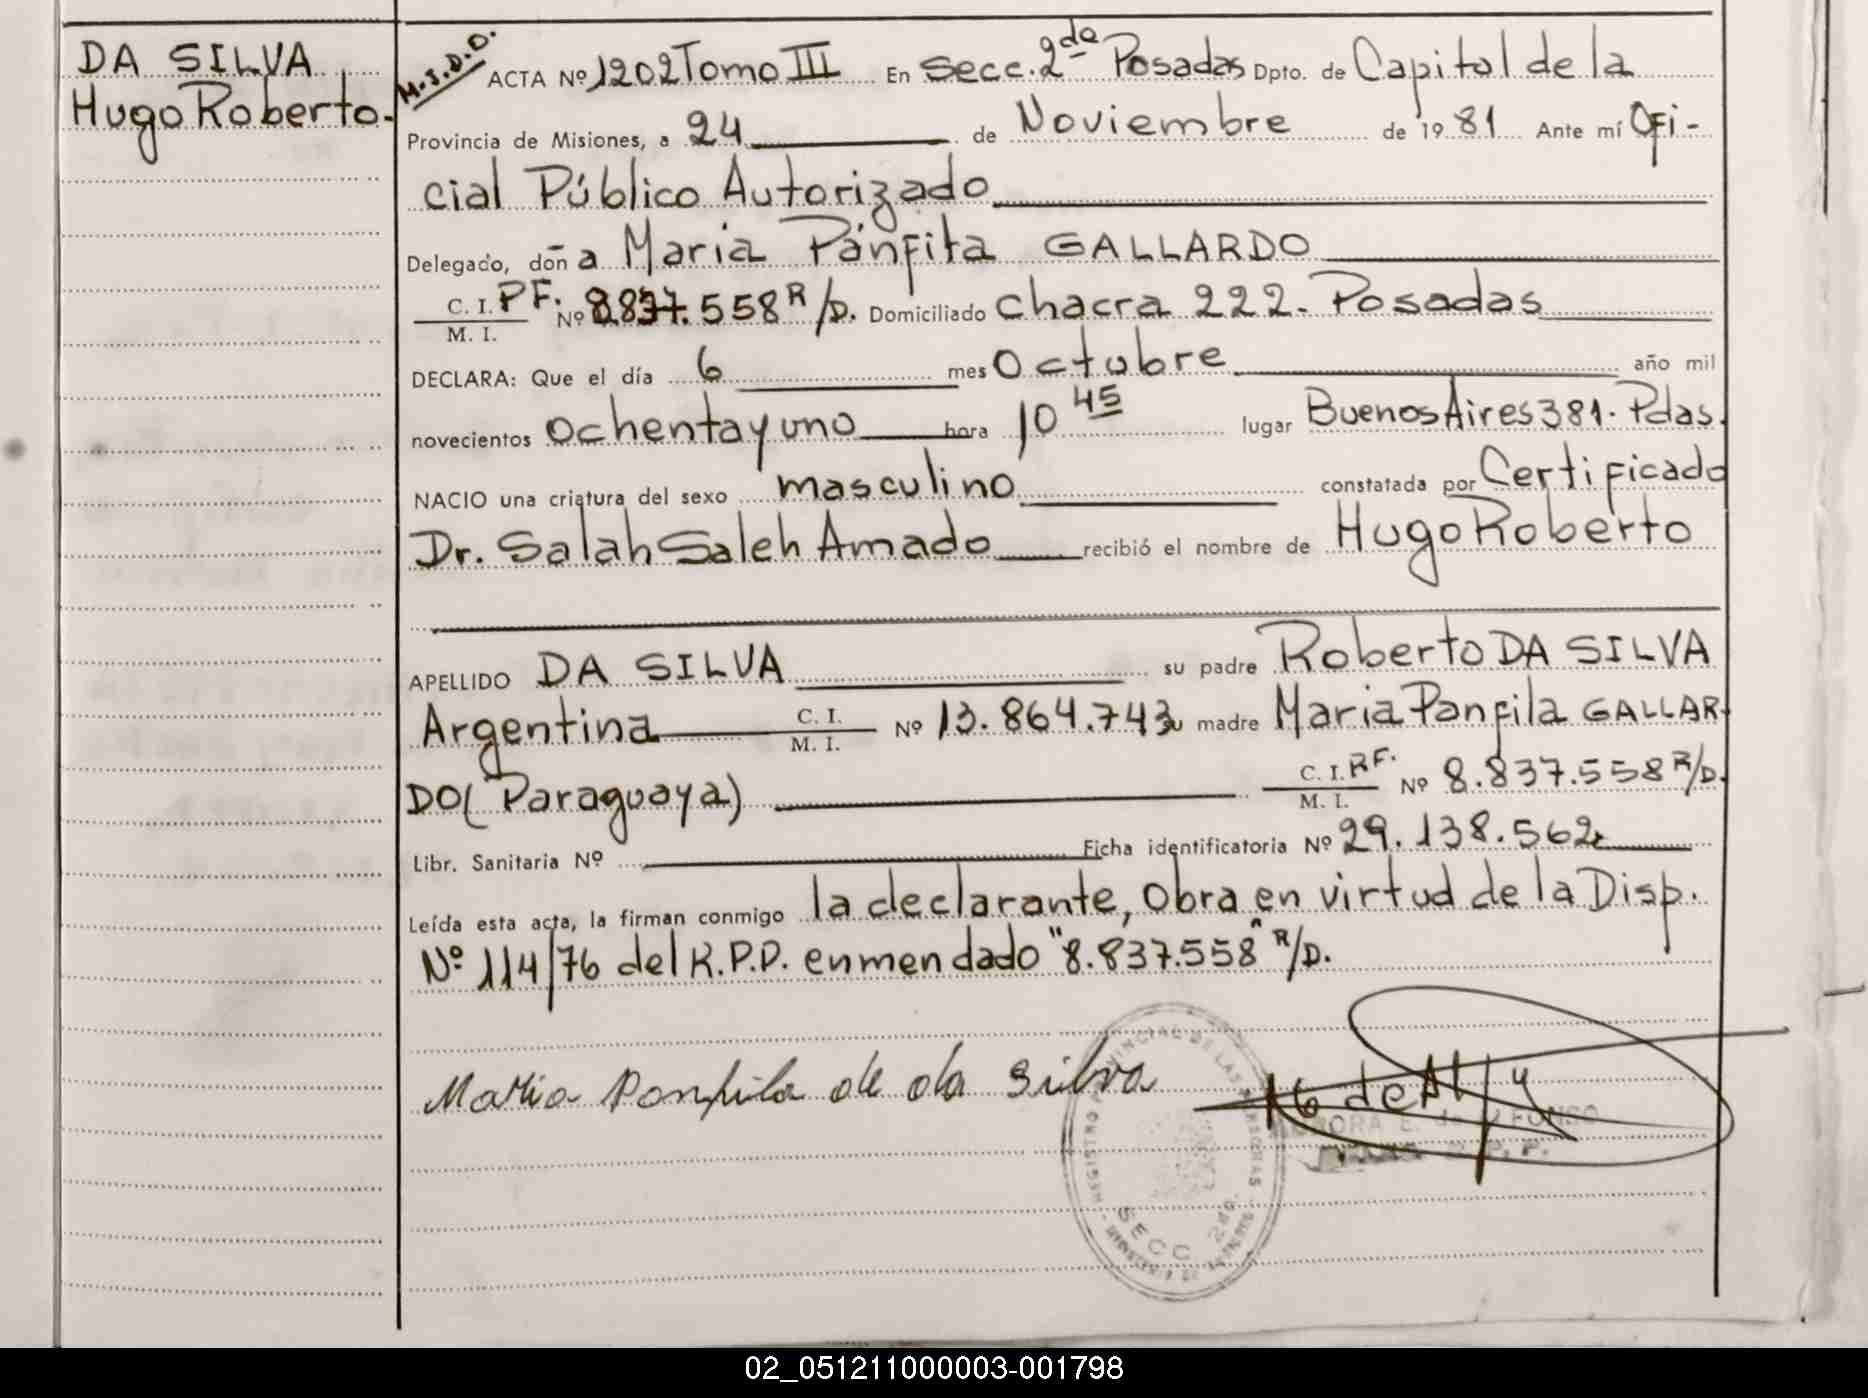 DA SILVA
Hugo Roberto.
M.I.D.O.
ACTA Nº 1202 Tomo III En Secc. 2da Posadas Dpto. de Capital de la
Provincia de Misiones, a 24 de Noviembre de 1981 Ante mí Ofi-
cial Público Autorizado
Delegado, doña Maria Pánfita GALLARDO
C. I. PF. Nº 8.837.558 R/D. Domiciliado chacra 222. Posadas
M. I.
DECLARA: Que el día 6 mes Octubre año mil
novecientos ochenta y uno hora 10 45 lugar Buenos Aires 381. Pdas.
NACIO una criatura del sexo masculino constatada por Certificado
Dr. Salah Saleh Amado recibió el nombre de Hugo Roberto
APELLIDO DA SILVA su padre Roberto DA SILVA
Argentina C. I. M. I. Nº 13.864.743 su madre Maria Panfila GALLAR-
DO( Paraguaya) C. I. PF. M. I. Nº 8.837.558 R/D.
Libr. Sanitaria Nº Ficha identificatoria Nº 29.138.562
Leída esta acta, la firman conmigo la declarante, Obra en virtud de la Disp.
Nº 114/76 del R.P.P. enmendado "8.837.558" R/D.
Maria Panfila de da Silva
REGISTRO PROVINCIAL DE LAS PERSONAS
SECC 2da.
02_051211000003-001798